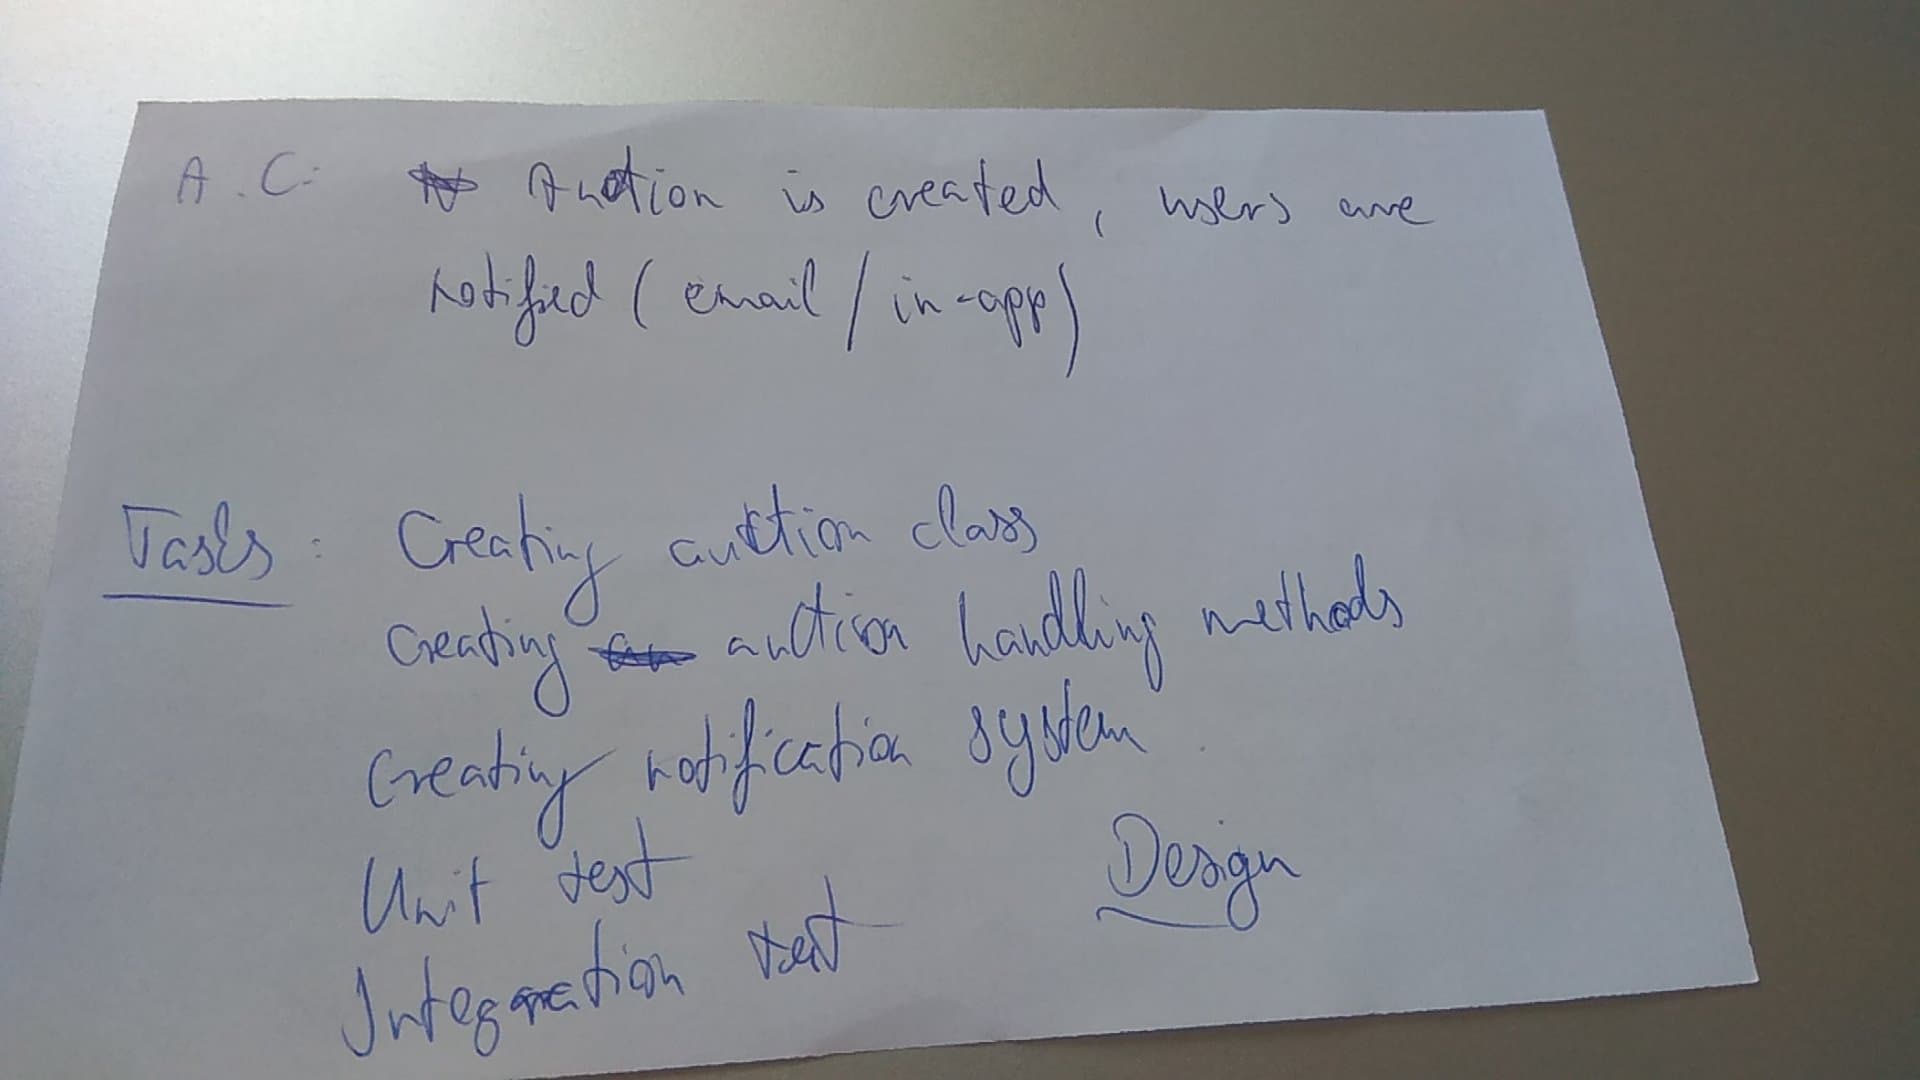 A.C: Auction is created, users are
notified (email / in-app)
Tasks: Creating auction class
Creating auction handling methods
Creating notification system
Unit test
Design
Integration test